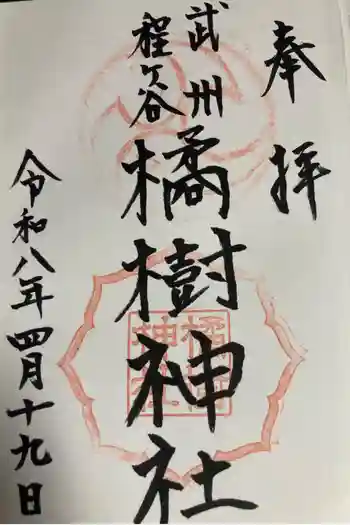 奉拝
武州
程ヶ谷
橘樹神社
令和八年四月十九日
橘樹
神社